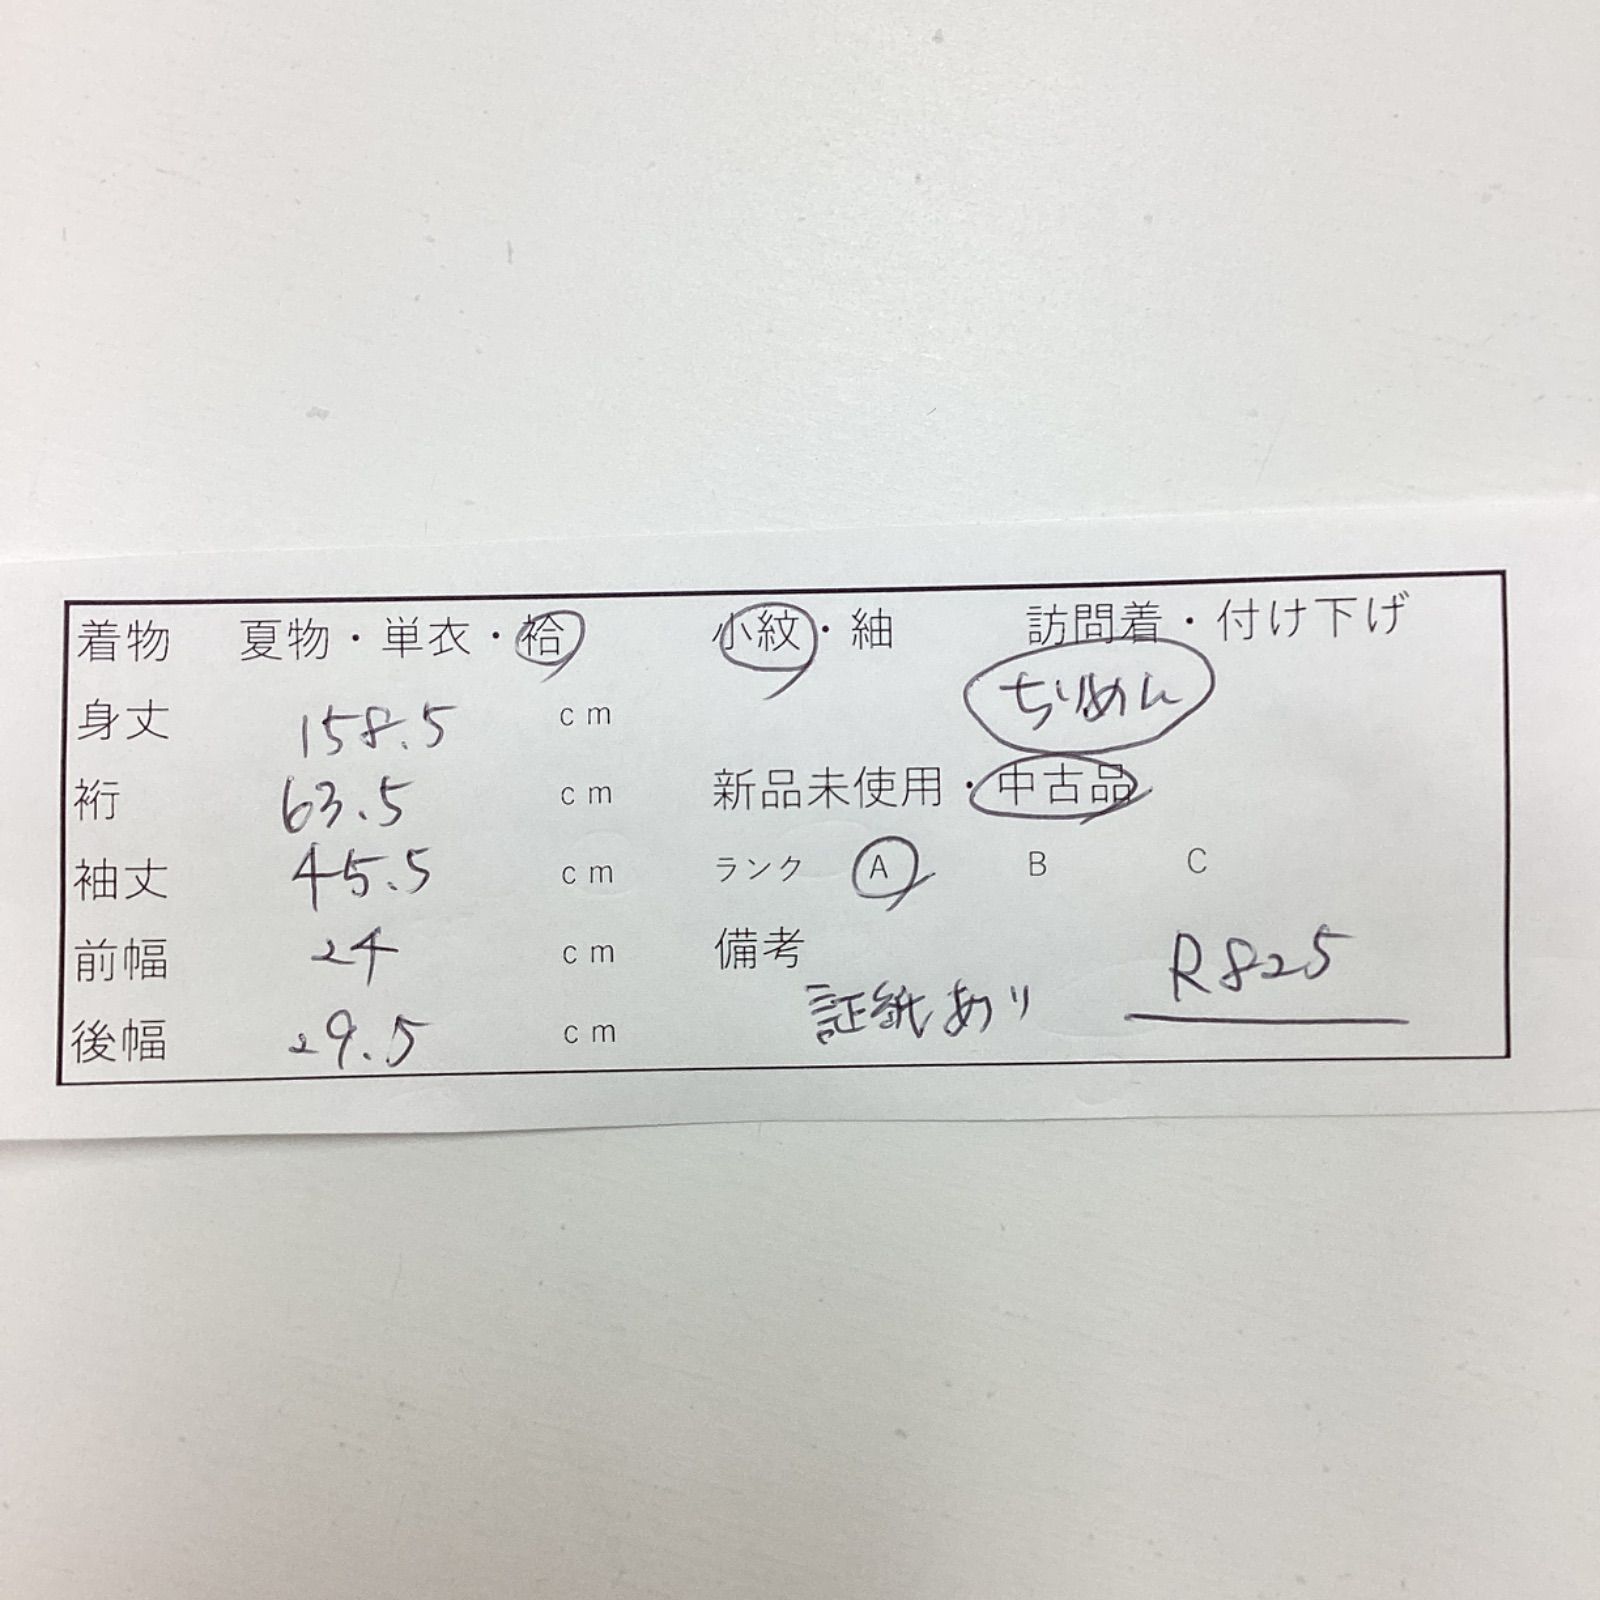 着物 夏物・単衣・袷 小紋・紬 訪問着・付け下げ
身丈 158.5 cm ちりめん
裄 63.5 cm 新品未使用・中古品
袖丈 45.5 cm ランク A B C
前幅 24 cm 備考 R825
後幅 29.5 cm 証紙あり